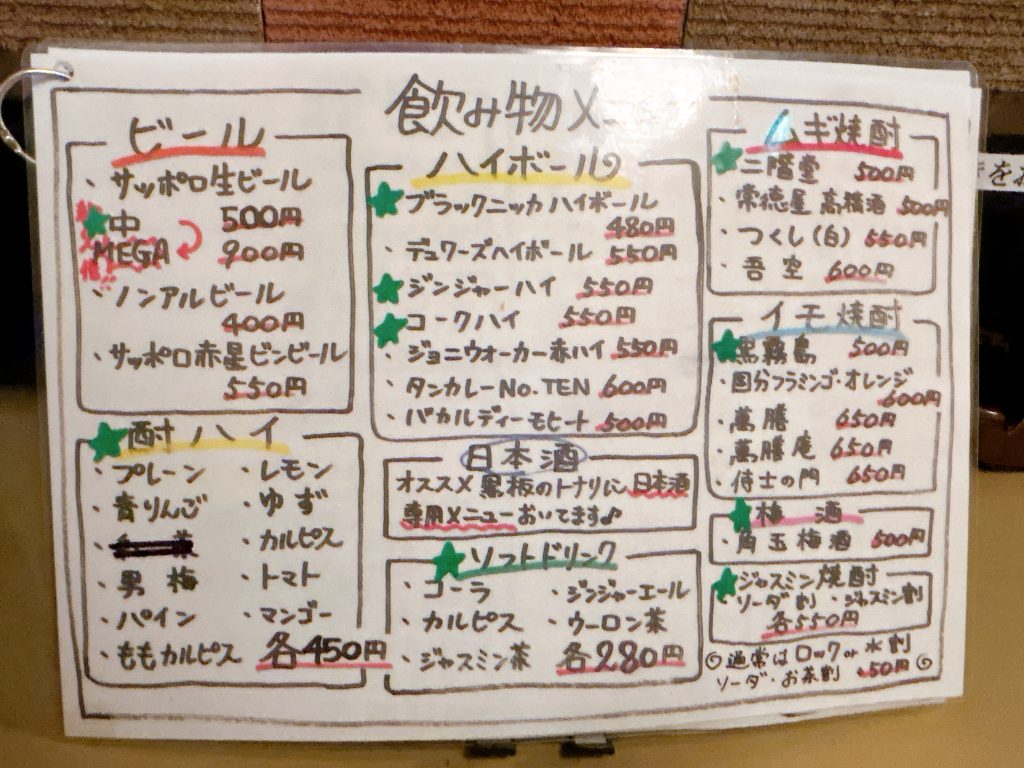 飲み物メ
ビール
・サッポロ生ビール
★中 500円
MEGA 900円
・ノンアルビール
400円
・サッポロ赤星ビンビール
550円
★酎ハイ
・プレーン ・レモン
・青りんご ・ゆず
・カルピス
・男梅 ・トマト
・パイン ・マンゴー
・ももカルピス 各450円
ハイボール
★ブラックニッカハイボール
480円
・デュワーズハイボール 550円
★ジンジャーハイ 550円
★コークハイ 550円
・ジョニウォーカー赤ハイ 550円
・タンカレーNo.TEN 600円
・バカルディーモヒート 500円
日本酒
オススメ黒板のトナリに日本酒
専用メニューおいてます♪
★ソフトドリンク
・コーラ ・ジンジャーエール
・カルピス ・ウーロン茶
・ジャスミン茶 各280円
ムギ焼酎
★二階堂 500円
・常徳屋 高橋酒 500円
・つくし(白) 550円
・吾空 600円
イモ焼酎
★黒霧島 500円
・国分フラミンゴ・オレンジ
600円
・萬膳 650円
・萬膳庵 650円
・侍士の門 650円
★梅酒
・角玉梅酒 500円
★ジャスミン焼酎
・ソーダ割 ・ジャスミン割
各550円
◎通常はロックor水割◎
ソーダ・お茶割 +50円
をお